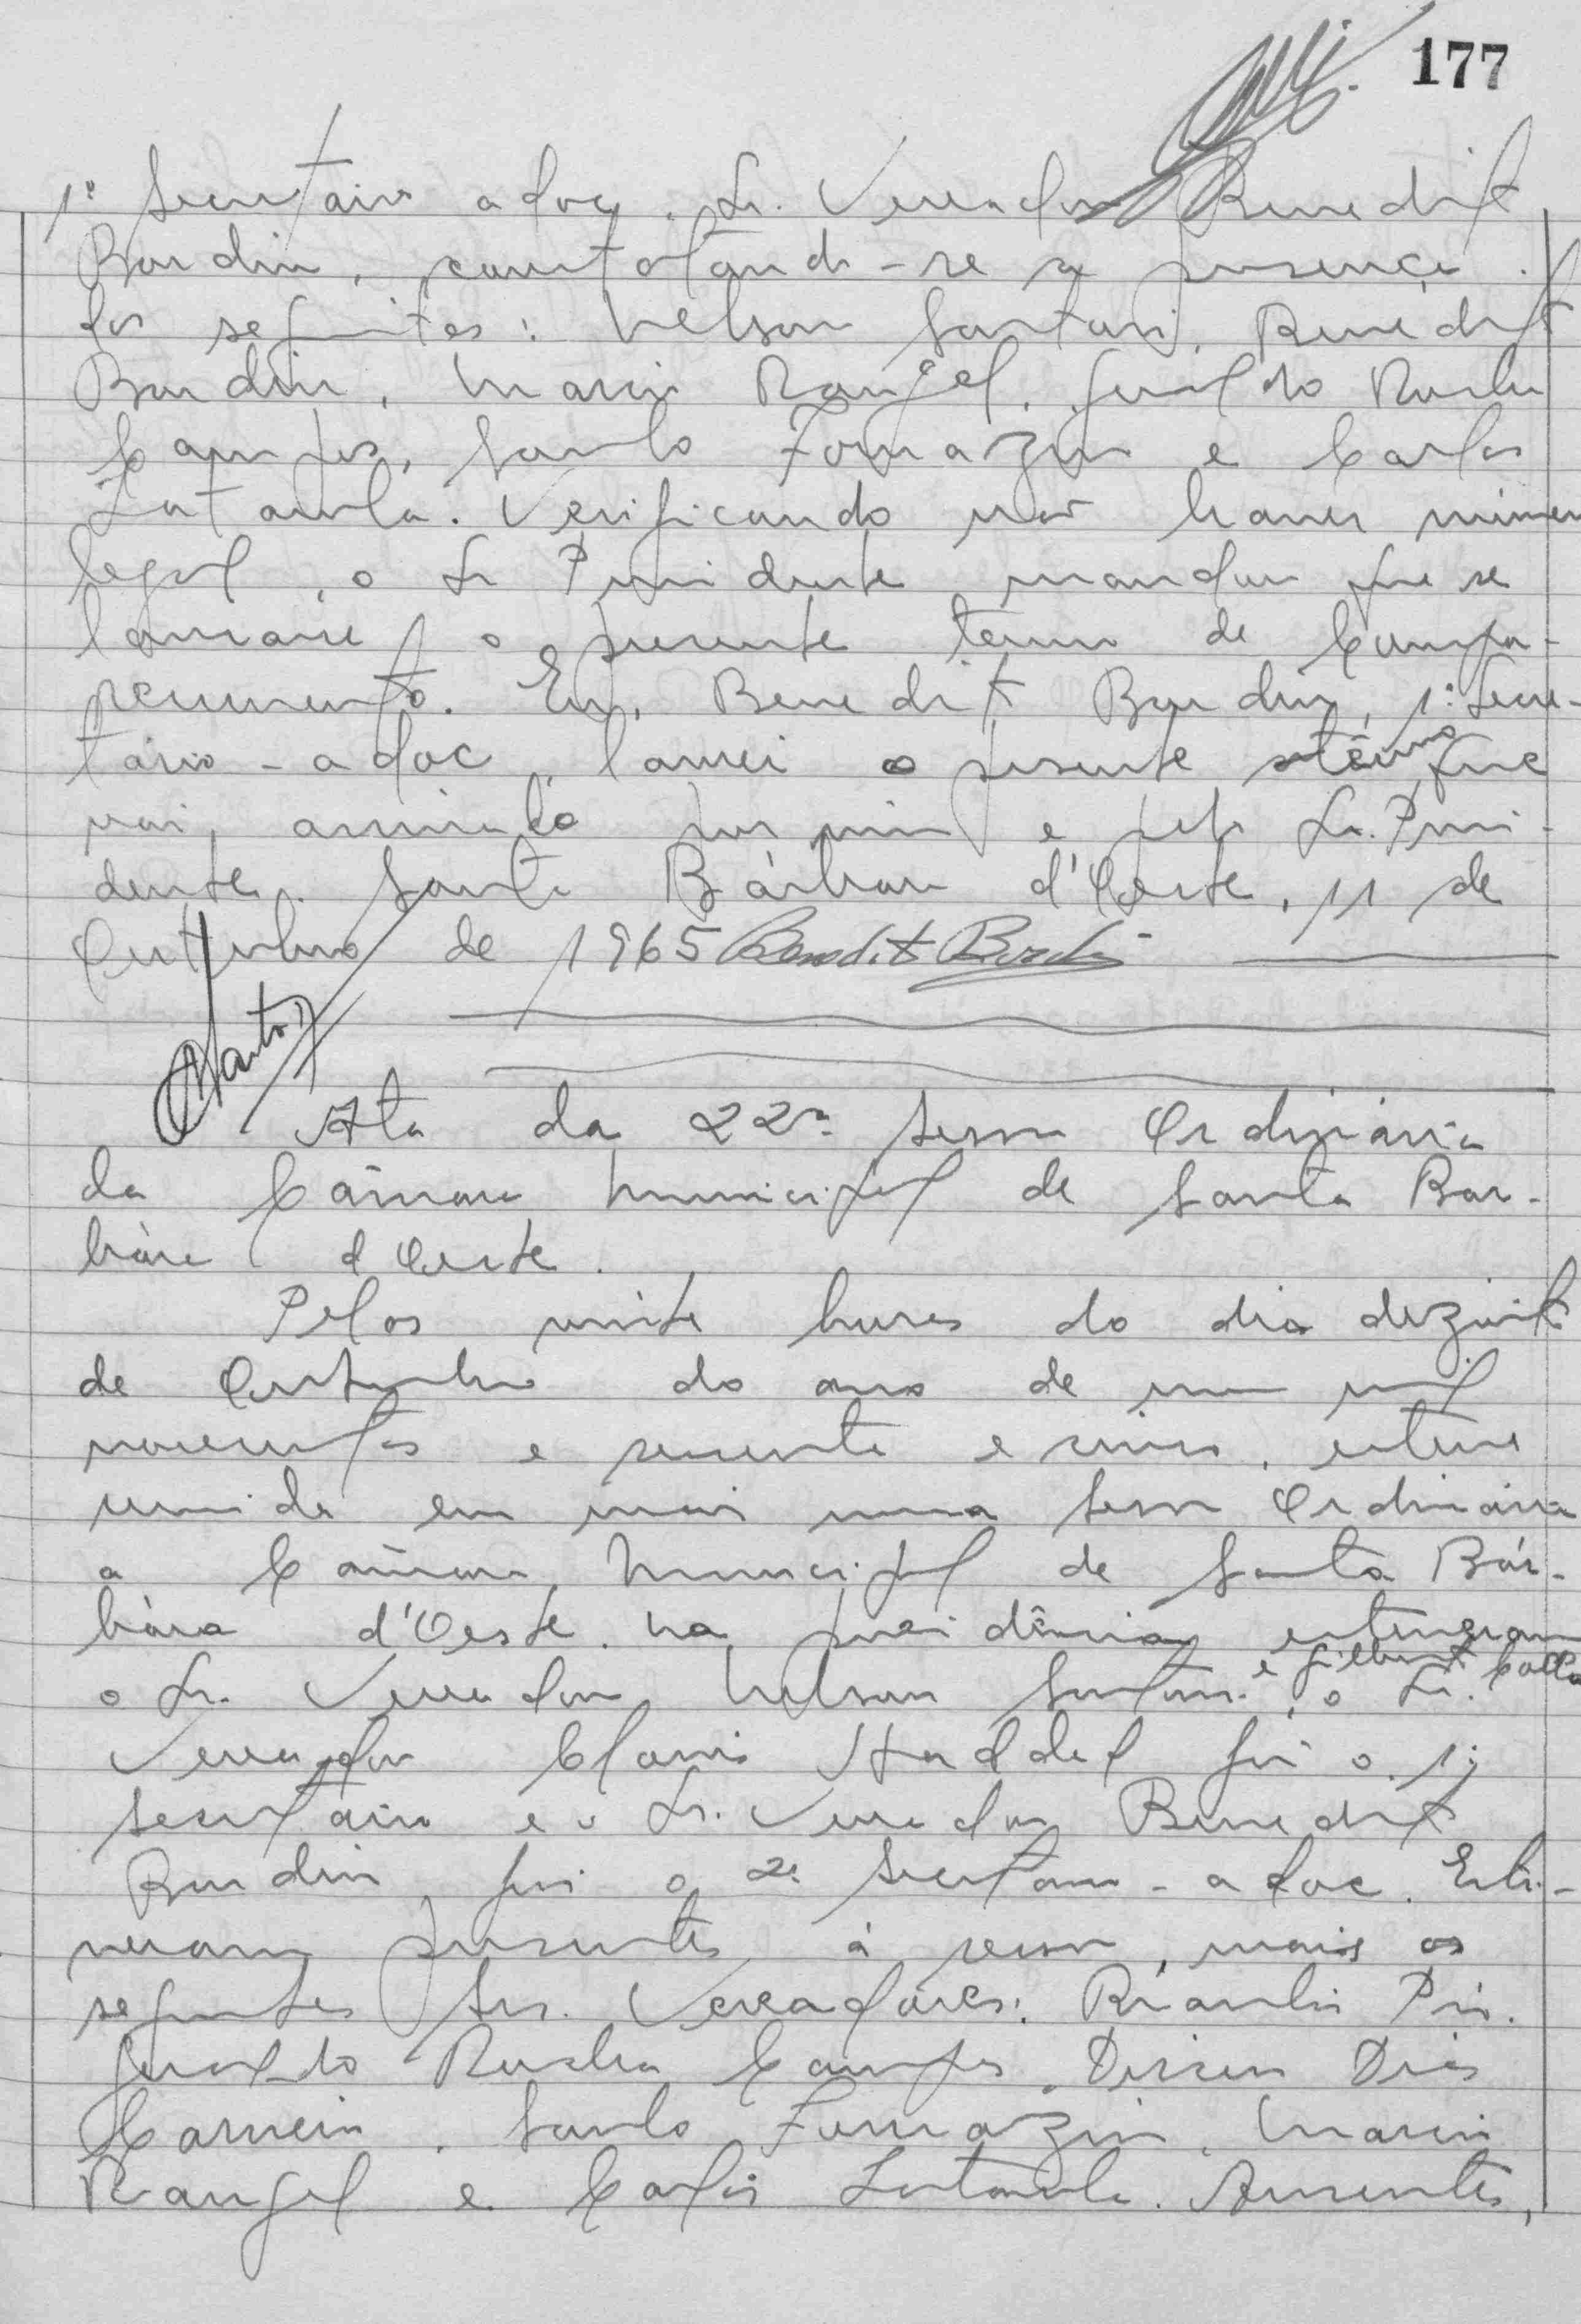 177
1º Secretario adoc, o Sr. Vereador Benedito
Bordin, constatando-se a presença
dos seguintes: Nelson Santori, Benedito
Bordin, Mario Rangel, Geraldo Rocha
Campos, Santo Fomazin e Carlos
Verificando não haver número
legal, o Sr Presidente mandou que se
lançasse o presente termo de Compa-
recimento. Eu, Benedito Bordin, 1º Secre-
tário - adoc, lancei o presente têrmo que
vai assinado por mim e pelo Sr. Presi-
dente. Santa Bárbara d'Oeste, 11 de
Outubro de 1965 Benedito Bordin
Ata da 22ª sessão Ordinária
da Câmara Municipal de Santa Bar-
bára d'Oeste.
Pelas vinte horas do dia dezoito
de Outubro do ano de um mil
novecentos e sessenta e cinco, esteve
reunida em mais uma sessão Ordinária
a Câmara Municipal de Santa Bár-
bára d'Oeste. Na presidência estiveram
e Gilberto
o Sr. Vereador Nelson Santori, o Sr.
Vereador Haddad foi o 1º
secretário e o Sr. Vereador Benedito
Bordin foi o 2º Secretário - adoc. Esti-
veram presentes à sessão, mais os
seguintes Srs. Vereadores:
Geraldo Rocha Campos, Dirceu Dias
Carneiro, Santo Fomazin, Mario
Rangel e Carlos Ausentes,